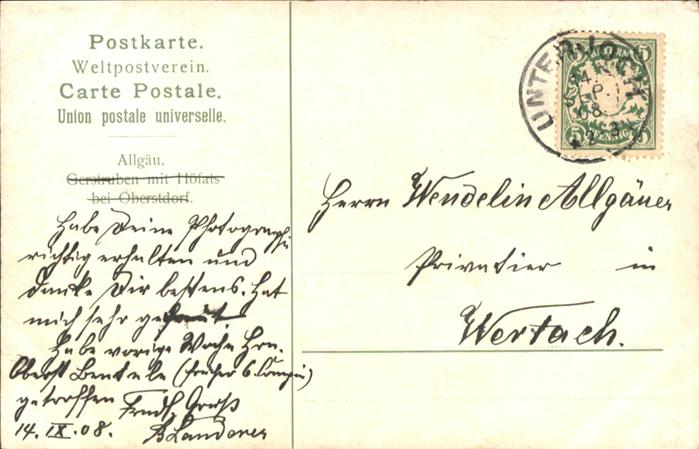 Postkarte.
Weltpostverein.
Carte Postale.
Union postale universelle.
Allgäu.
Gerstruben mit Höfats
bei Oberstdorf.
Habe Deine Photographie
richtig erhalten und
danke Dir bestens. Hat
mich sehr gefreut.
Habe vorige Woche Hrn.
Oberst Bentele (früher 6. Comp.)
getroffen Frndl. Gruß
14. IX. 08. B Landerer
UNTERJOCH
14.
SEP.
08
BAYERN
5 5
5 PFENNIG 5
Herrn Wendelin Allgäuer
Privatier in
Wertach.